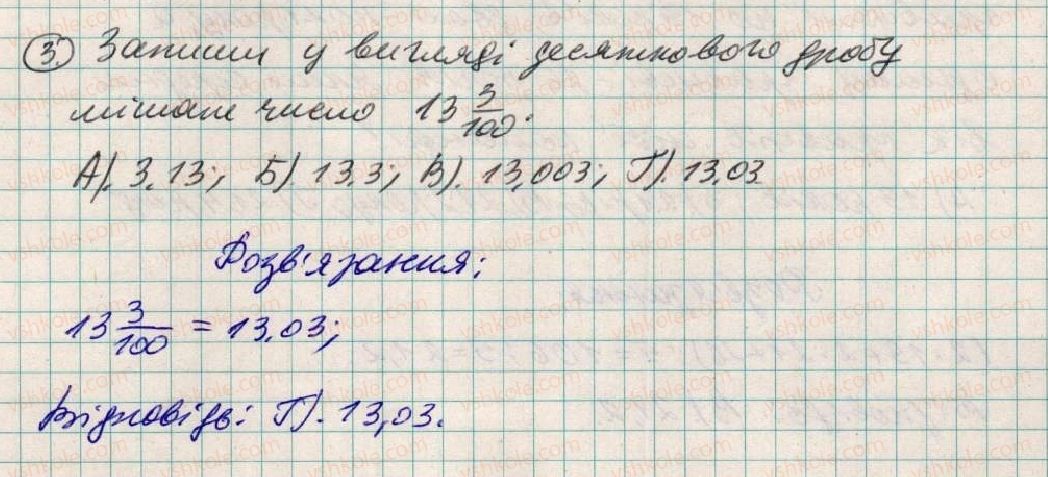 3. Запиши у вигляді десяткового дробу
мішане число 13 3/100.
А). 3.13; Б). 13.3; В). 13.003; Г). 13.03
Розв'язання:
13 3/100 = 13.03;
Відповідь: Г). 13,03.